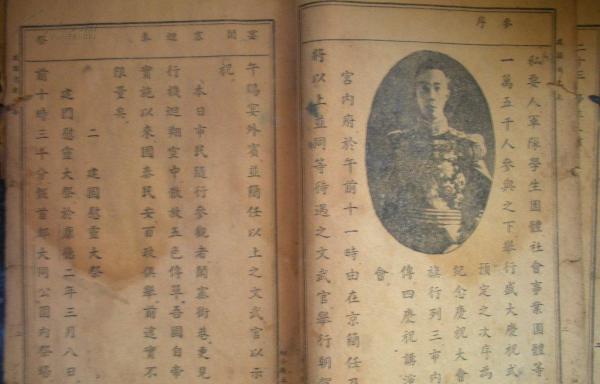 私要人軍隊學生團體社會事業團體等
一萬五千人參與之下舉行盛大慶祝式
預定之次序為
紀念慶祝大會
旗行列三市內
傳四慶祝講演
會
宮內府於午前十一時由在京簡任及
將以上並同等待遇之文武官舉行朝賀
午賜宴外賓並簡任以上之文武官以示
祝
本日市民隨行參觀者闐塞街巷更見
行機迴翔空中散放五色傳單吾國自帝
實施以來國泰民安百政俱舉前途實不
限量矣
二 建國慰靈大祭
建國慰靈大祭於康德二年三月八日
前十時三十分假首都大同公園內祭場